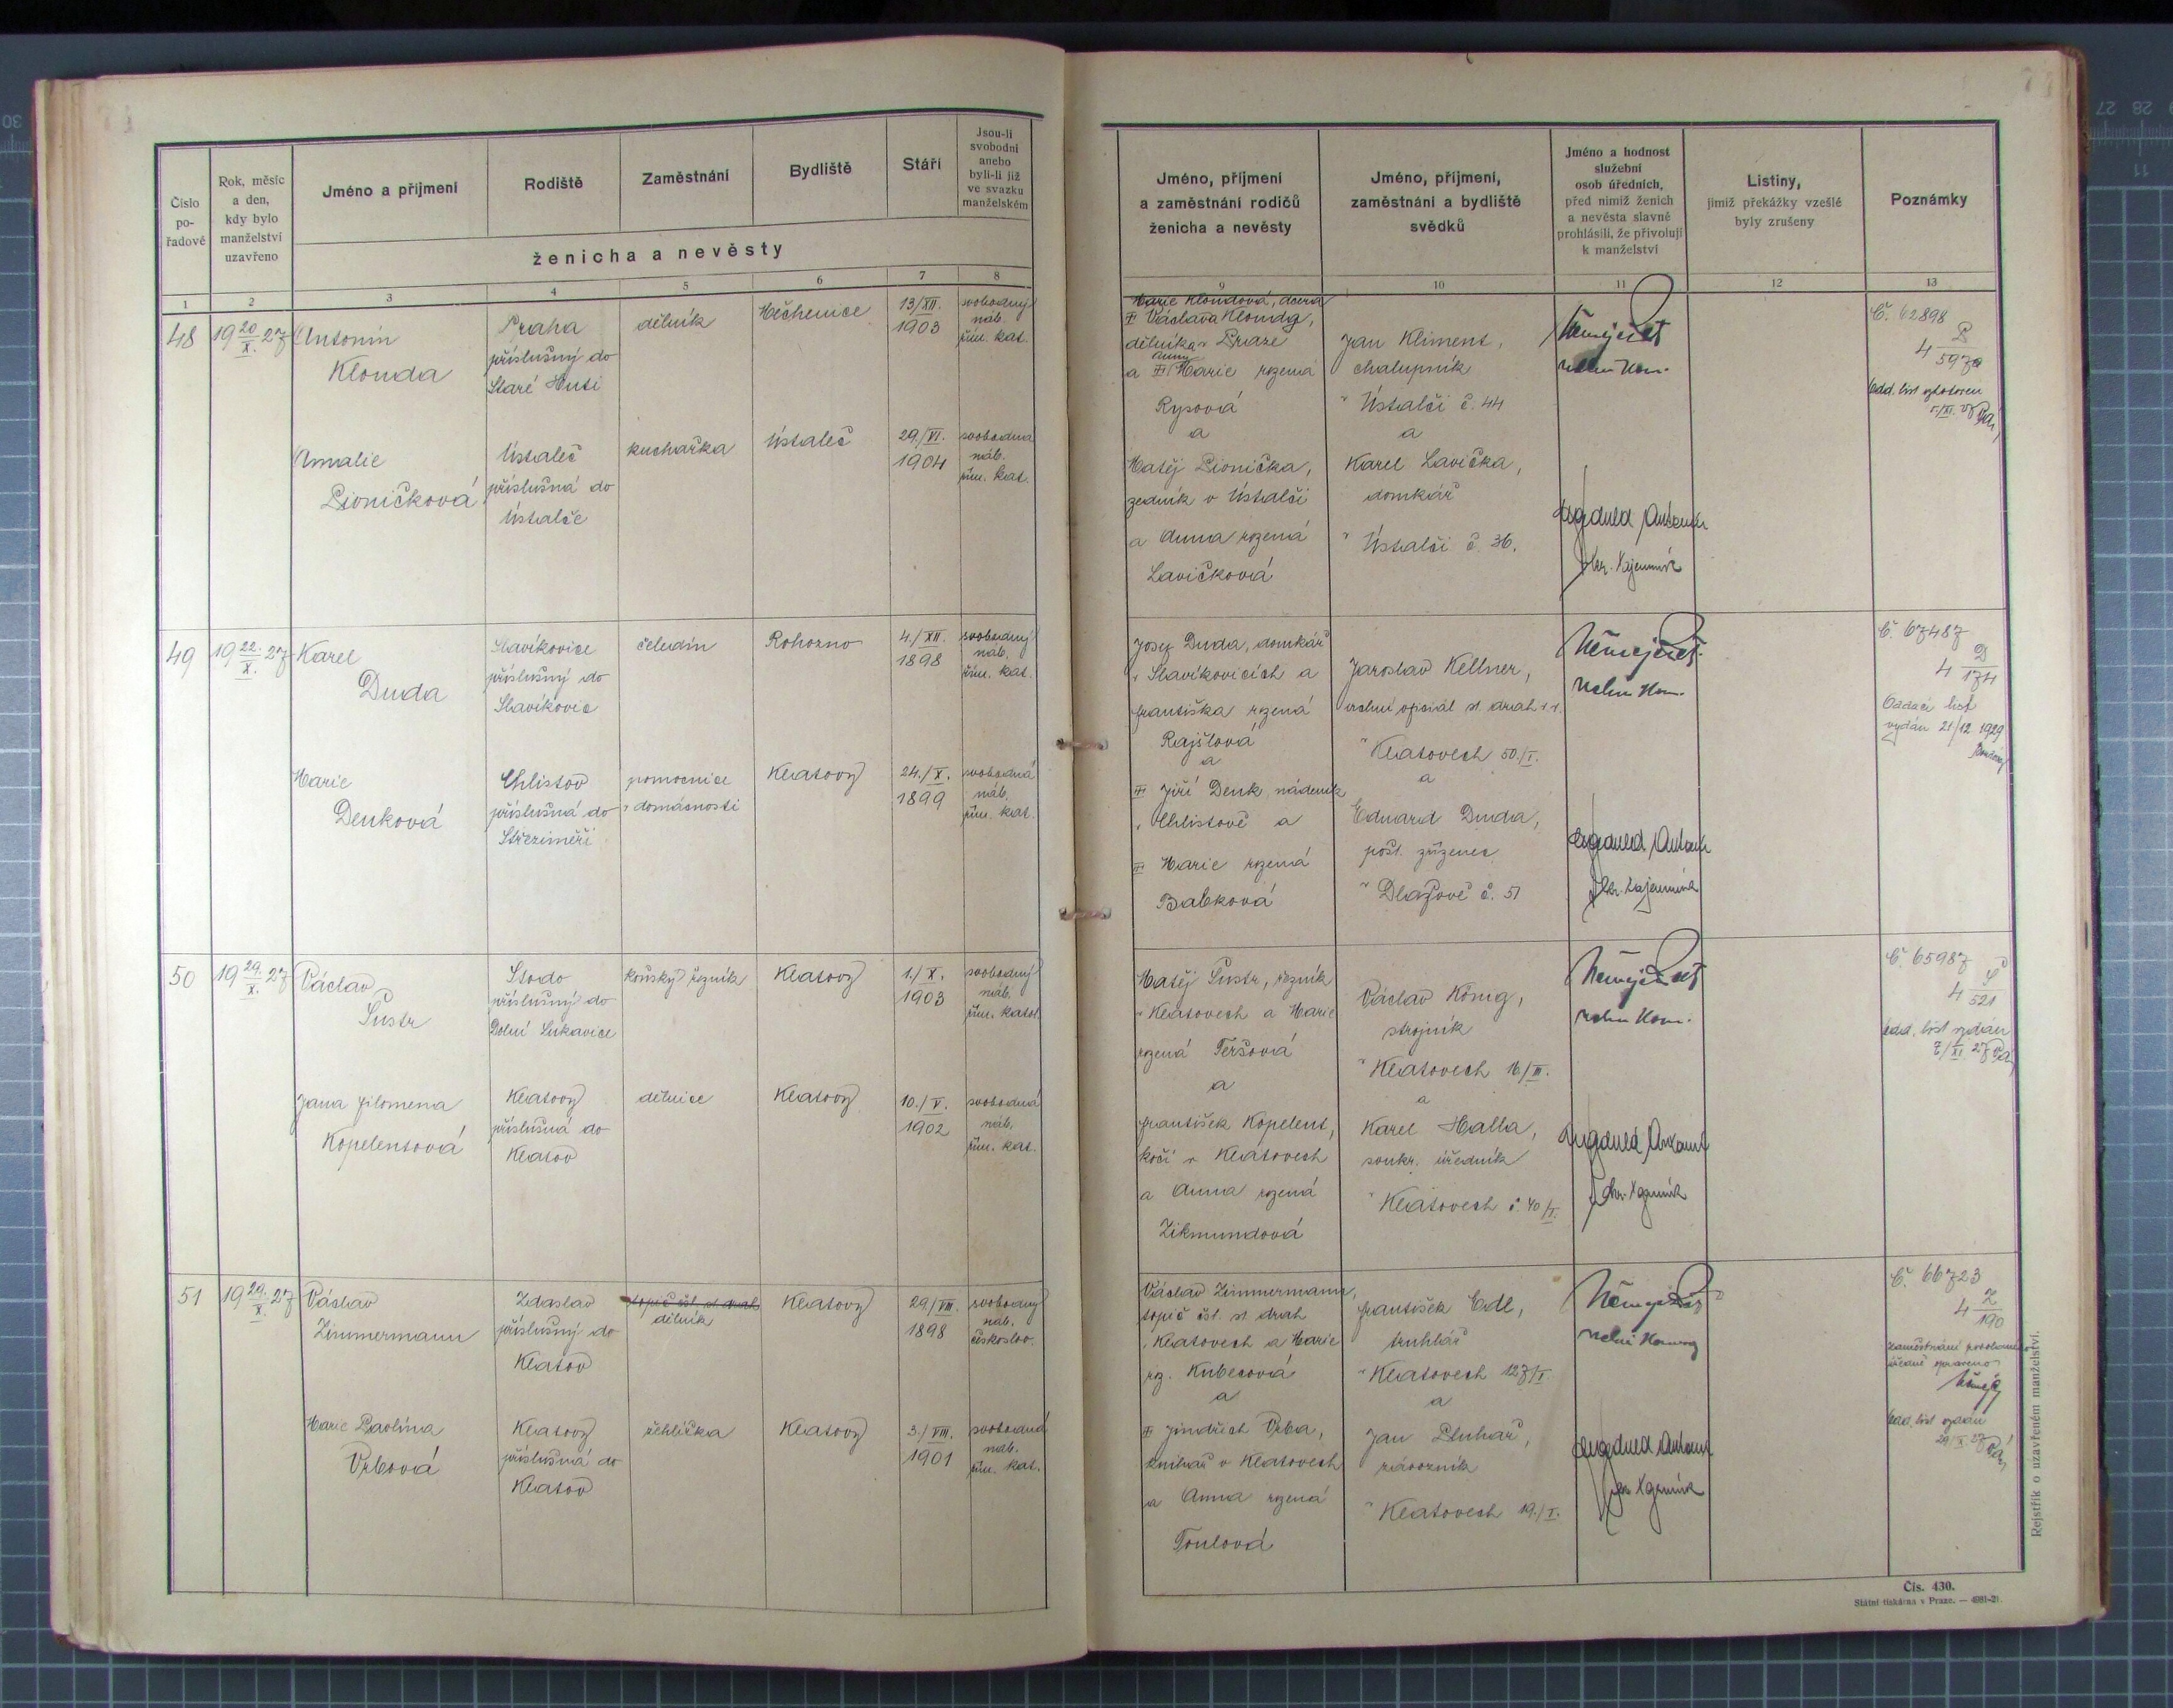 Číslo
po-
řadové
Rok, měsíc
a den,
kdy bylo
manželství
uzavřeno
Jméno a příjmení
Rodiště
Zaměstnání
Bydliště
Stáří
Jsou-li
svobodni
anebo
byli-li již
ve svazku
manželském
ženicha a nevěsty
1 2 3 4 5 6 7 8
48
19 20/X. 27
Antonín
Klouda
Praha
příslušný do
Staré Huti
dělník
Měchenice
13/XII.
1903
svobodný
náb.
řím. kat.
Amalie
Pioničková
Ústaleč
příslušná do
Ústalče
kuchařka
Ústaleč
29./VI.
1904
svobodná
náb.
řím. kat.
49
19 22./X. 27
Karel
Duda
Slavíkovice
příslušný do
Slavíkovic
čeledín
Rohozno
4./XII.
1898
svobodný
náb.
řím. kat.
Marie
Denková
Chlistov
příslušná do
Střeziměři
pomocnice
v domácnosti
Klatovy
24./X.
1899
svobodná
náb.
řím. kat.
50
19 29./X. 27
Václav
Šustr
Stodo
příslušný do
Dolní Lukavice
koňský řezník
Klatovy
1./X.
1903
svobodný
náb.
řím. katol.
Jana Filomena
Kopelentová
Klatovy
příslušná do
Klatov
dělnice
Klatovy
10./V.
1902
svobodná
náb.
řím. kat.
51
19 29./X. 27
Václav
Zimmermann
Zdaslav
příslušný do
Klatov
topič čsl. st. drah
dělník
Klatovy
29/VIII.
1898
svobodný
náb.
českoslov.
Marie Pavlína
Vrbová
Klatovy
příslušná do
Klatov
žehlířka
Klatovy
3./VIII.
1901
svobodná
náb.
řím. kat.
Jméno, příjmení
a zaměstnání rodičů
ženicha a nevěsty
Jméno, příjmení,
zaměstnání a bydliště
svědků
Jméno a hodnost
služební
osob úředních,
před nimiž ženich
a nevěsta slavně
prohlásili, že přivolují
k manželství
Listiny,
jimiž překážky vzešlé
byly zrušeny
Poznámky
9 10 11 12 13
Marie Kloudová, dcera
Václava Kloudy,
dělníka v Praze
Anny
a Marie rozená
Rysová
a
Matěj Pionička,
zedník v Ústalči
a Anna rozená
Lavičková
Jan Kliment,
chalupník
v Ústalči č. 44
a
Karel Lavička,
domkář
v Ústalči č. 36.
Č. 62898
4 P/597a
Josef Duda, domkář
v Slavíkovicích a
Františka rozená
Rajšlová
a
Jiří Denk, nádeník
v Chlistově a
Marie rozená
Babková
Jaroslav Kellner,
vrchní oficiál st. drah v. v.
v Klatovech 50./I.
a
Eduard Duda,
pošt. zřízenec
v Dlažově č. 51
Č. 67487
4 D/174
Oddací list
vydán 21/12 1929
Matěj Šustr, řezník
v Klatovech a Marie
rozená Teršová
a
František Kopelent,
kočí v Klatovech
a Anna rozená
Zikmundová
Václav König,
strojník
v Klatovech 16/III.
a
Karel Halla,
soukr. úředník
v Klatovech č. 40/I.
Č. 65987
4 Š/521
odd. list vydán
7/XI. 27
Václav Zimmermann,
topič čsl. st. drah
v Klatovech a Marie
roz. Kubecová
a
Jindřich Vrba,
knihař v Klatovech
a Anna rozená
Toulová
František Edl,
truhlář
v Klatovech 127/I
a
Jan Pluhař,
návozník
v Klatovech 19./I.
Č. 66723
4 Z/190
úředně opraveno
odd. list vydán
Rejstřík o uzavřeném manželství.
Čís. 430.
Státní tiskárna v Praze. — 4981-21.